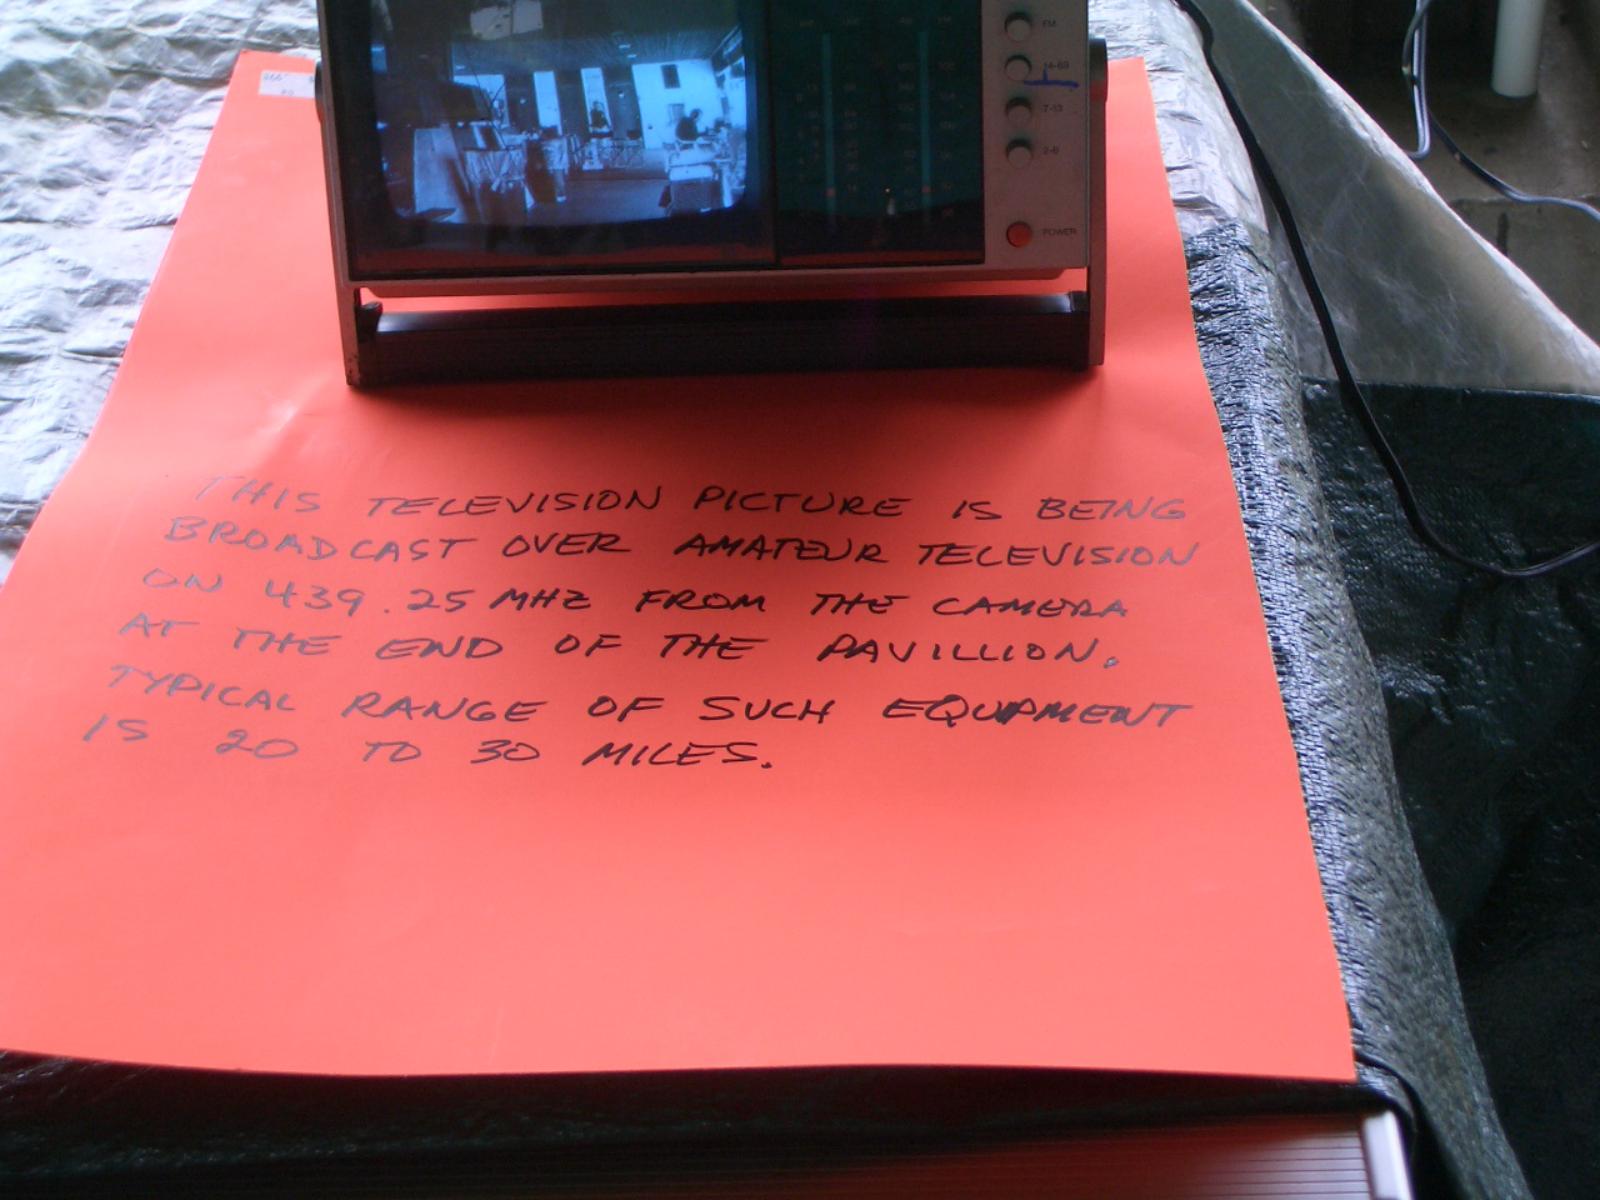 FM
14-69
7-13
2-6
POWER
THIS TELEVISION PICTURE IS BEING
BROADCAST OVER AMATEUR TELEVISION
ON 439.25 MHZ FROM THE CAMERA
AT THE END OF THE PAVILLION.
TYPICAL RANGE OF SUCH EQUIPMENT
IS 20 TO 30 MILES.